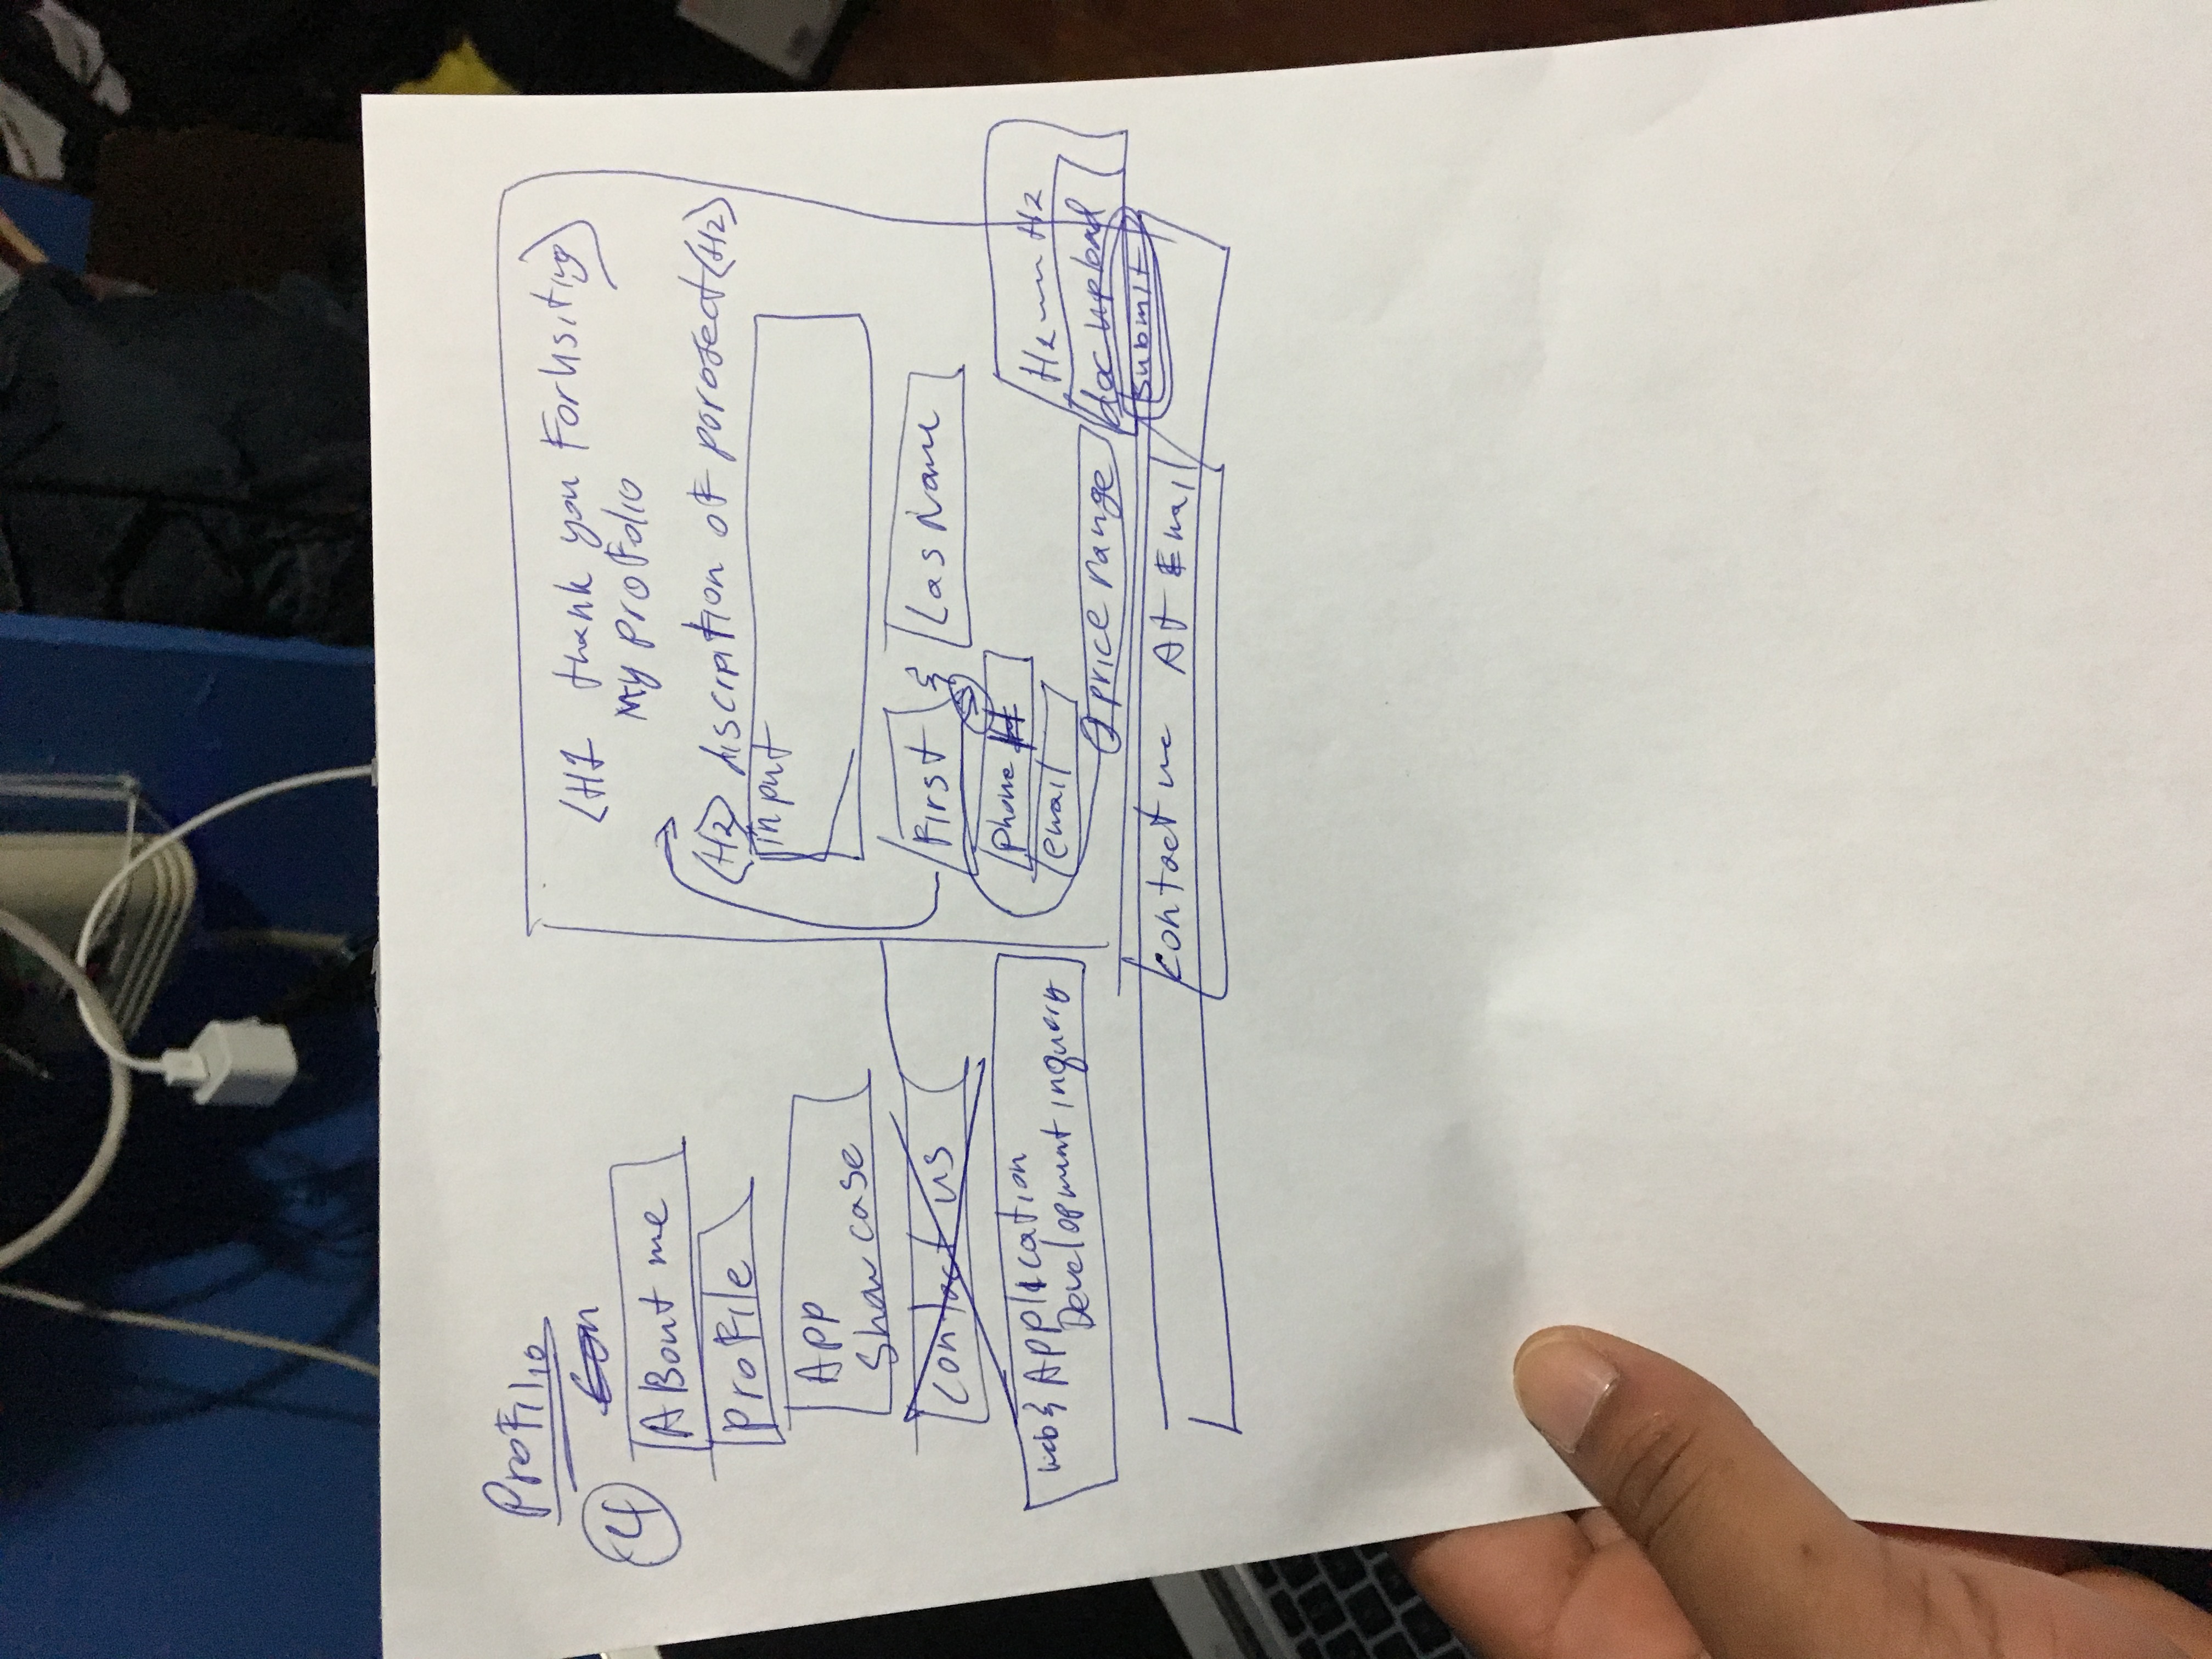 Profilio
4
About me
Profile
App
Show case
Contact us
web & Application
Development inquery
(H1 thank you For Visiting)
My profolio
(H2) discription of porosect (H2)
input
First & Las Name
phone #
email
price range
H2 H2
doc upload
submit
Contact me At Email